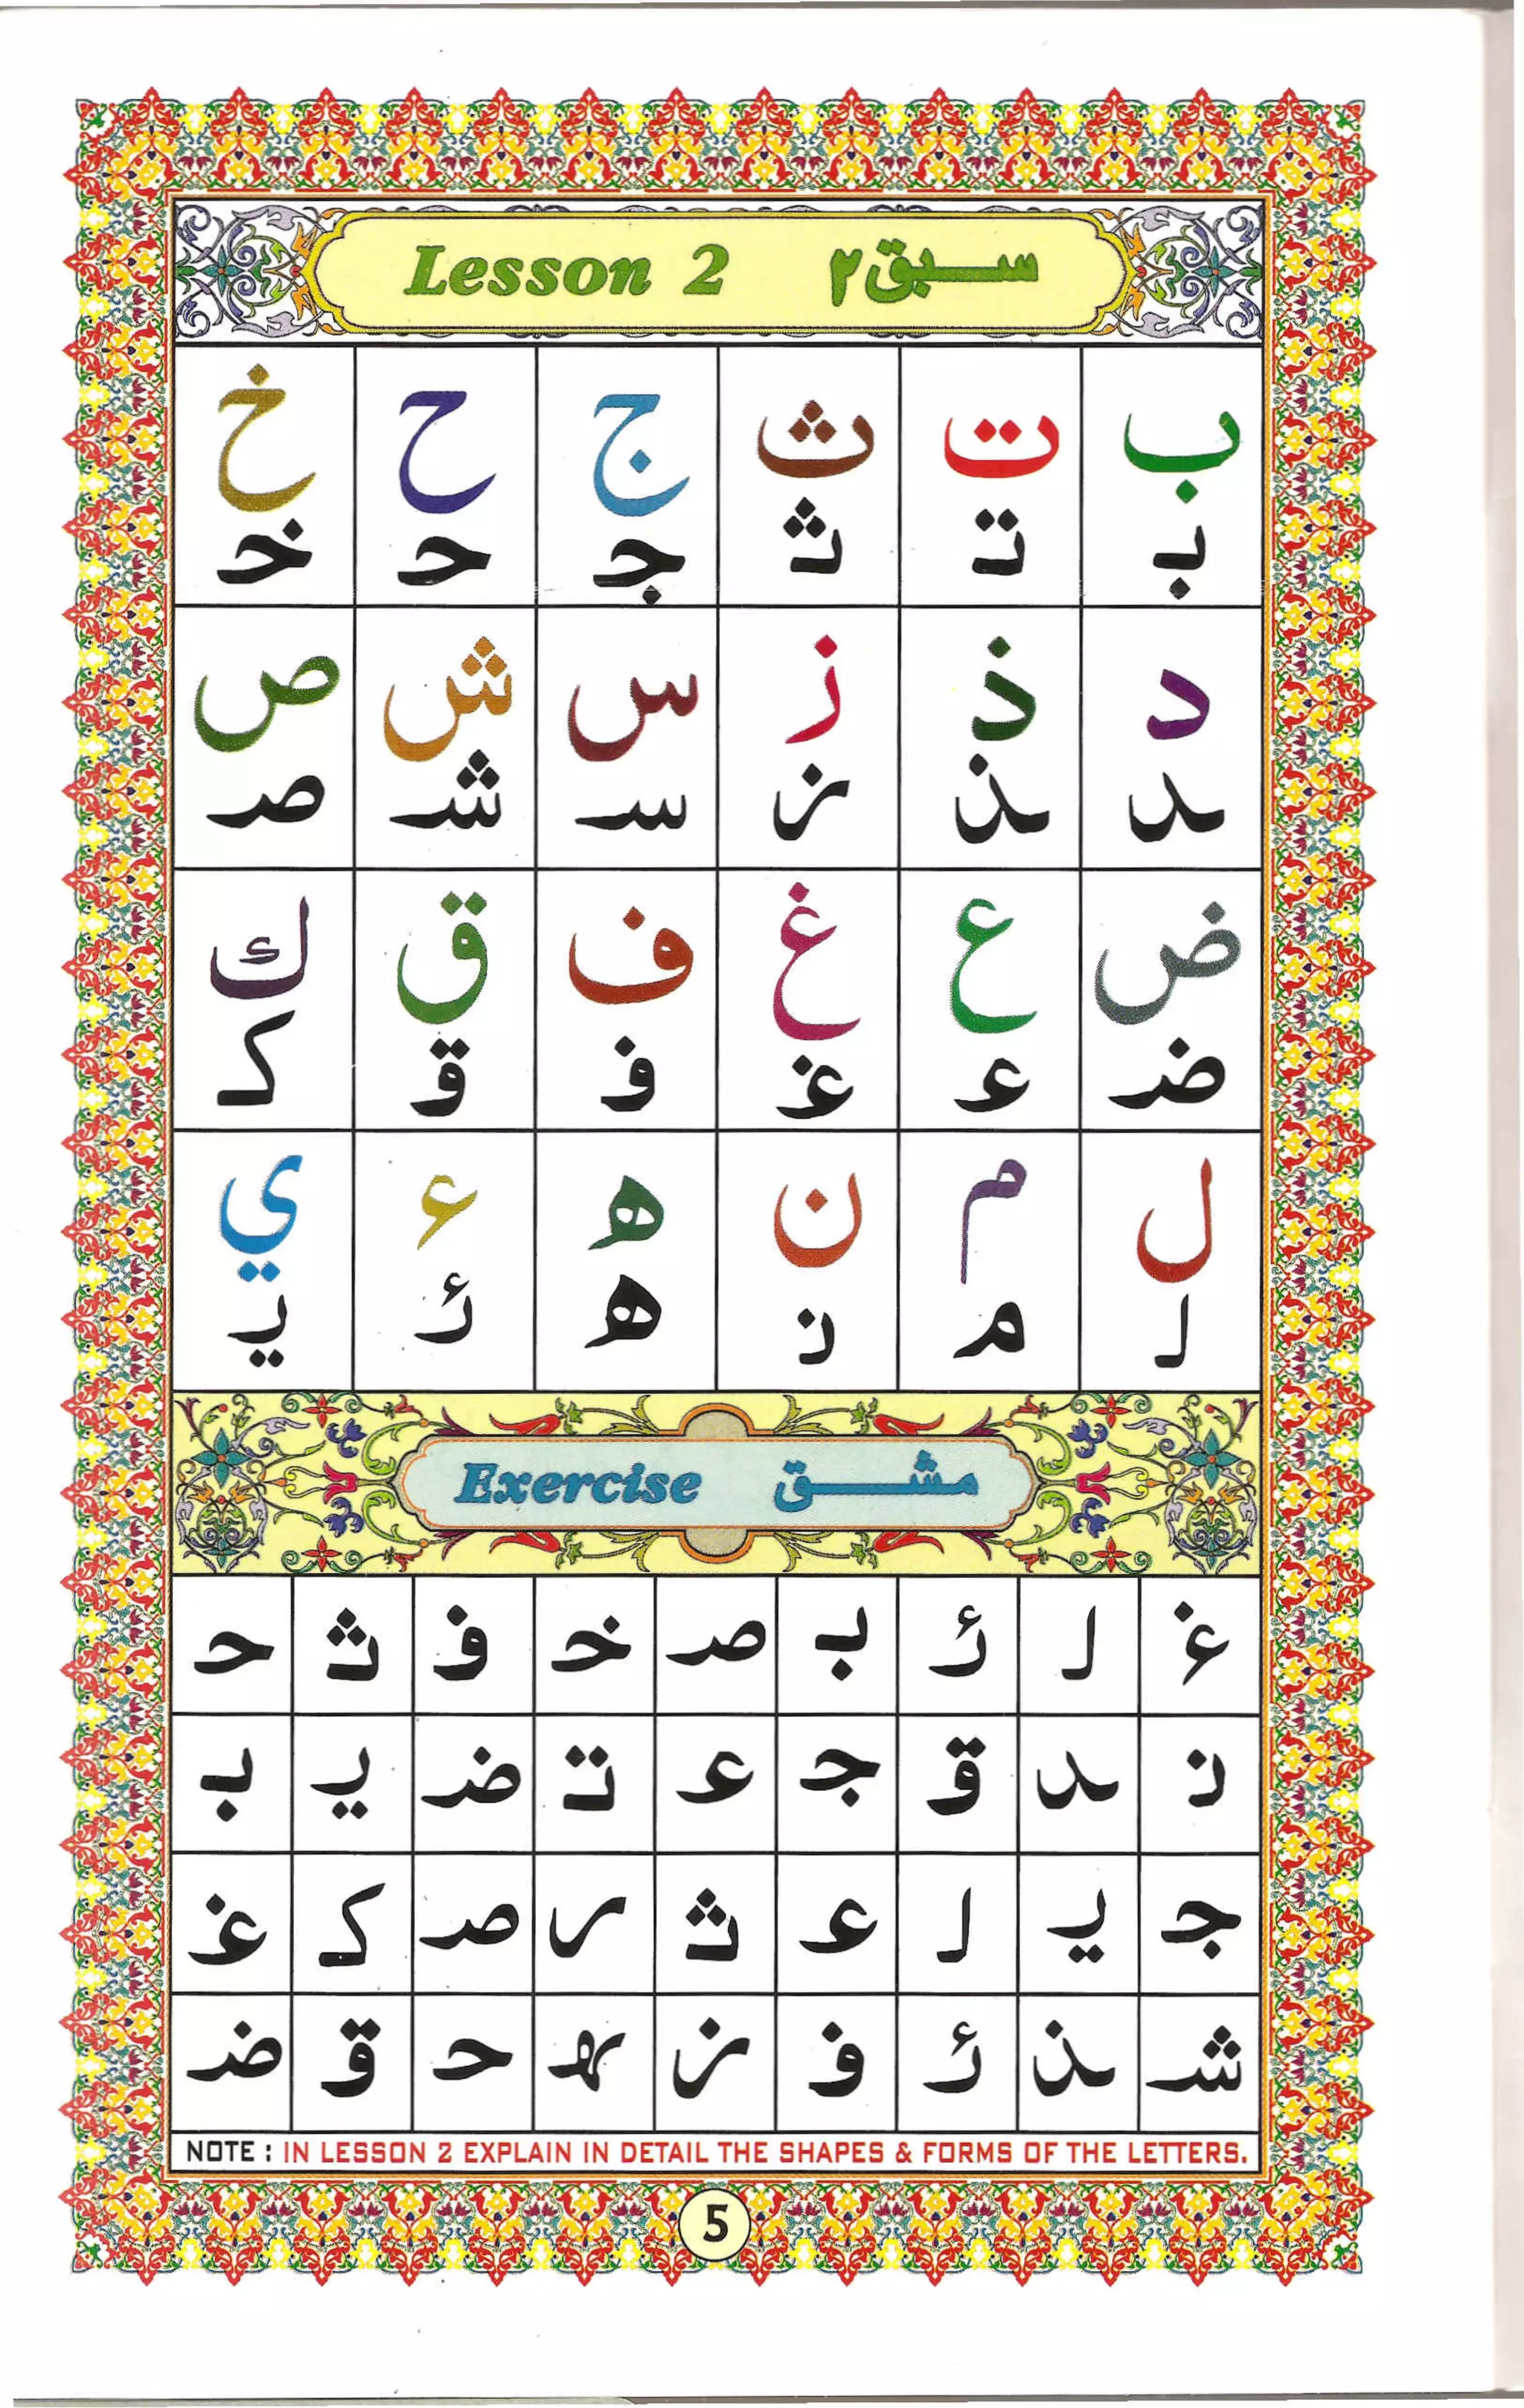 Lesson 2 سبق ٢
ب ت ث ج ح خ
بـ تـ ثـ جـ حـ خـ
د ذ ز س ش ص
ـد ـذ ـز سـ شـ صـ
ض ع غ ف ق ك
ضـ عـ غـ فـ قـ كـ
ل م ن ه ء ي
لـ مـ نـ ه ئـ يـ
Exercise مشق
غـ لـ ئـ بـ صـ خـ فـ ثـ حـ
نـ ـد قـ جـ عـ تـ ضـ يـ بـ
جـ يـ لـ عـ ثـ ـر صـ كـ غـ
شـ ـذ ئـ فـ ـز ـهـ حـ قـ ضـ
NOTE : IN LESSON 2 EXPLAIN IN DETAIL THE SHAPES & FORMS OF THE LETTERS.
5